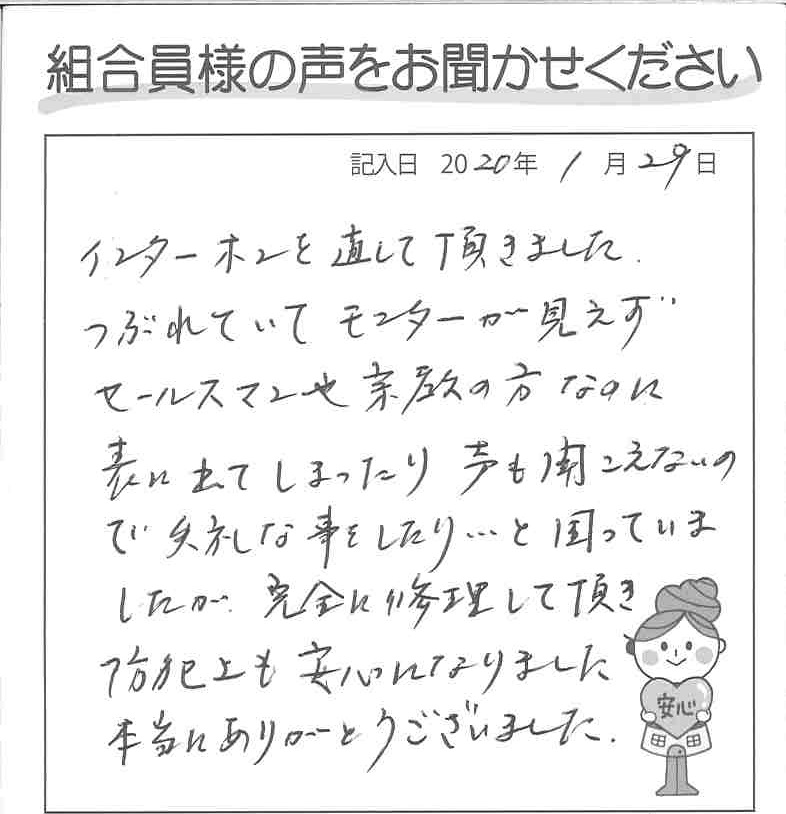 組合員様の声をお聞かせください
記入日 2020年 1月29日
インターホンを直して頂きました.
つぶれていてモニターが見えず
セールスマンや宗教の方なのに
表に出てしまったり声も聞こえないの
で失礼な事をしたり…と困っていま
したが、完全に修理して頂き
防犯上も安心になりました
本当にありがとうございました.
安心